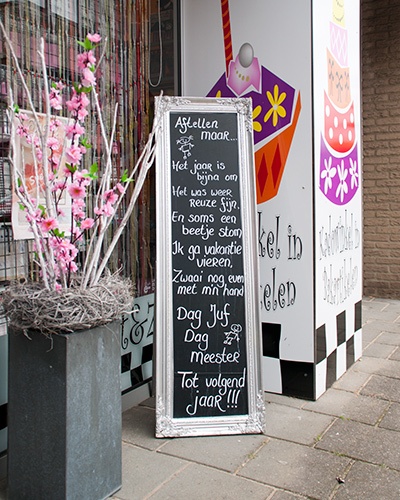 Aftellen
maar...
Het jaar is
bijna om
Het was weer
reuze fijn,
En soms een
beetje stom
Ik ga vakantie
vieren,
Zwaai nog even
met m'n hand
Dag Juf
Dag
meester
Tot volgend
jaar !!!
kel in
kelen